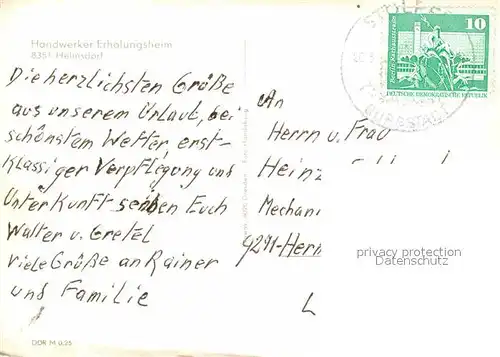 Handwerker Erholungsheim
8351 Helmsdorf
Die herzlichsten Grüße
aus unserem Urlaub, bei
schönstem Wetter, erst-
Klassiger Verpflegung und
Unterkunft senden Euch
Walter u. Gretel
viele Grüße an Rainer
und Familie
DDR M 0,25
An
Herrn u. Frau
Heinz
Mechani
9291-Herm
L
10
DEUTSCHE DEMOKRATISCHE REPUBLIK
privacy protection
Datenschutz